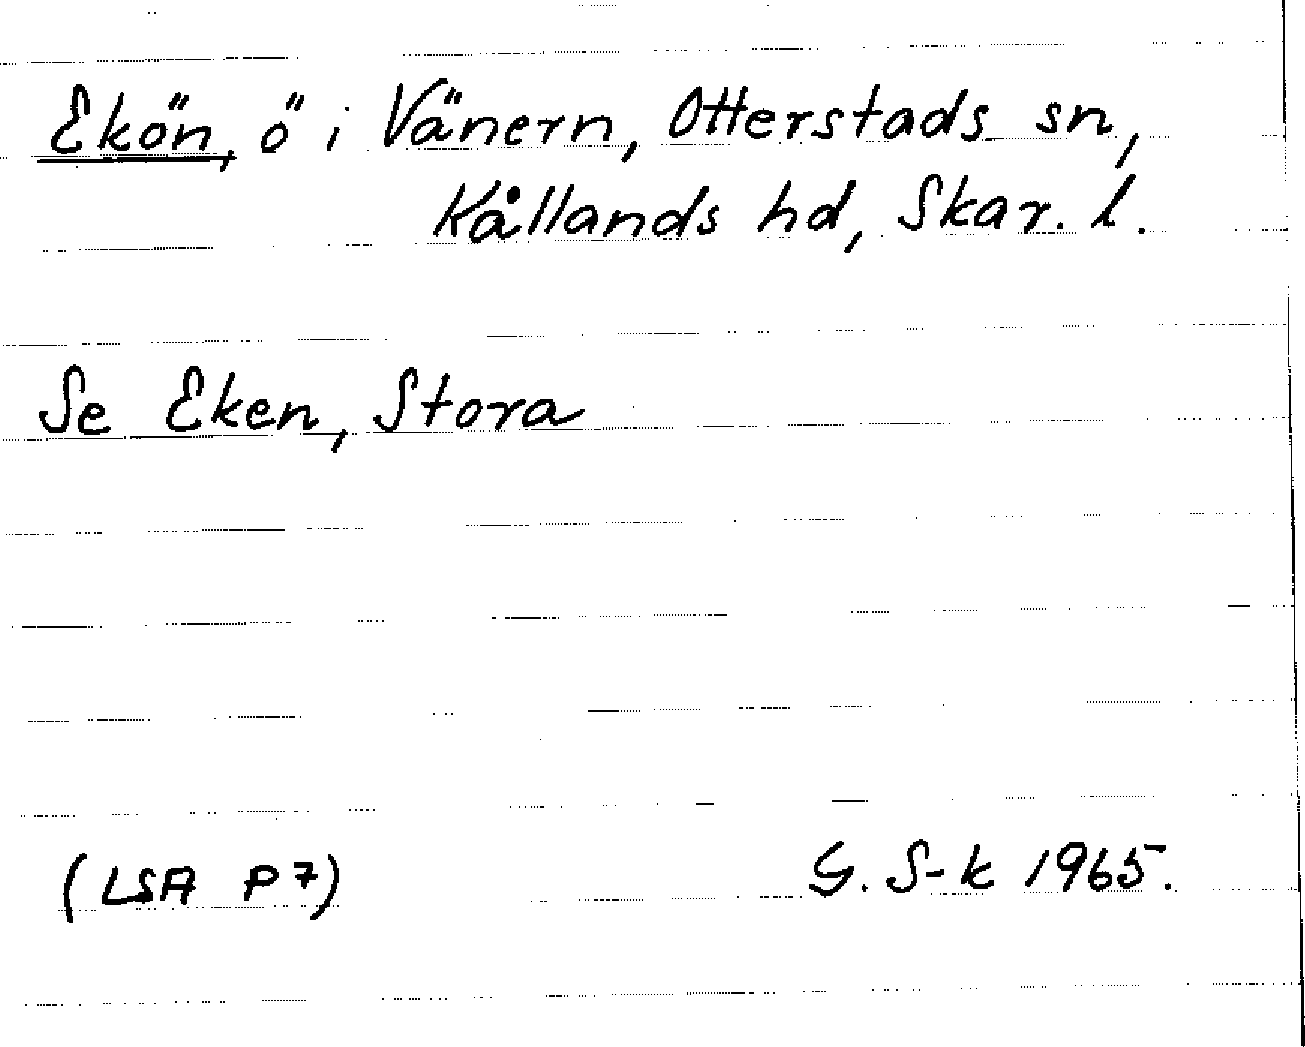 Ekön, ö i Vänern, Otterstads sn,
Kållands hd, Skar. l.
Se Eken, Stora
(LSA P7)
G. S-k 1965.